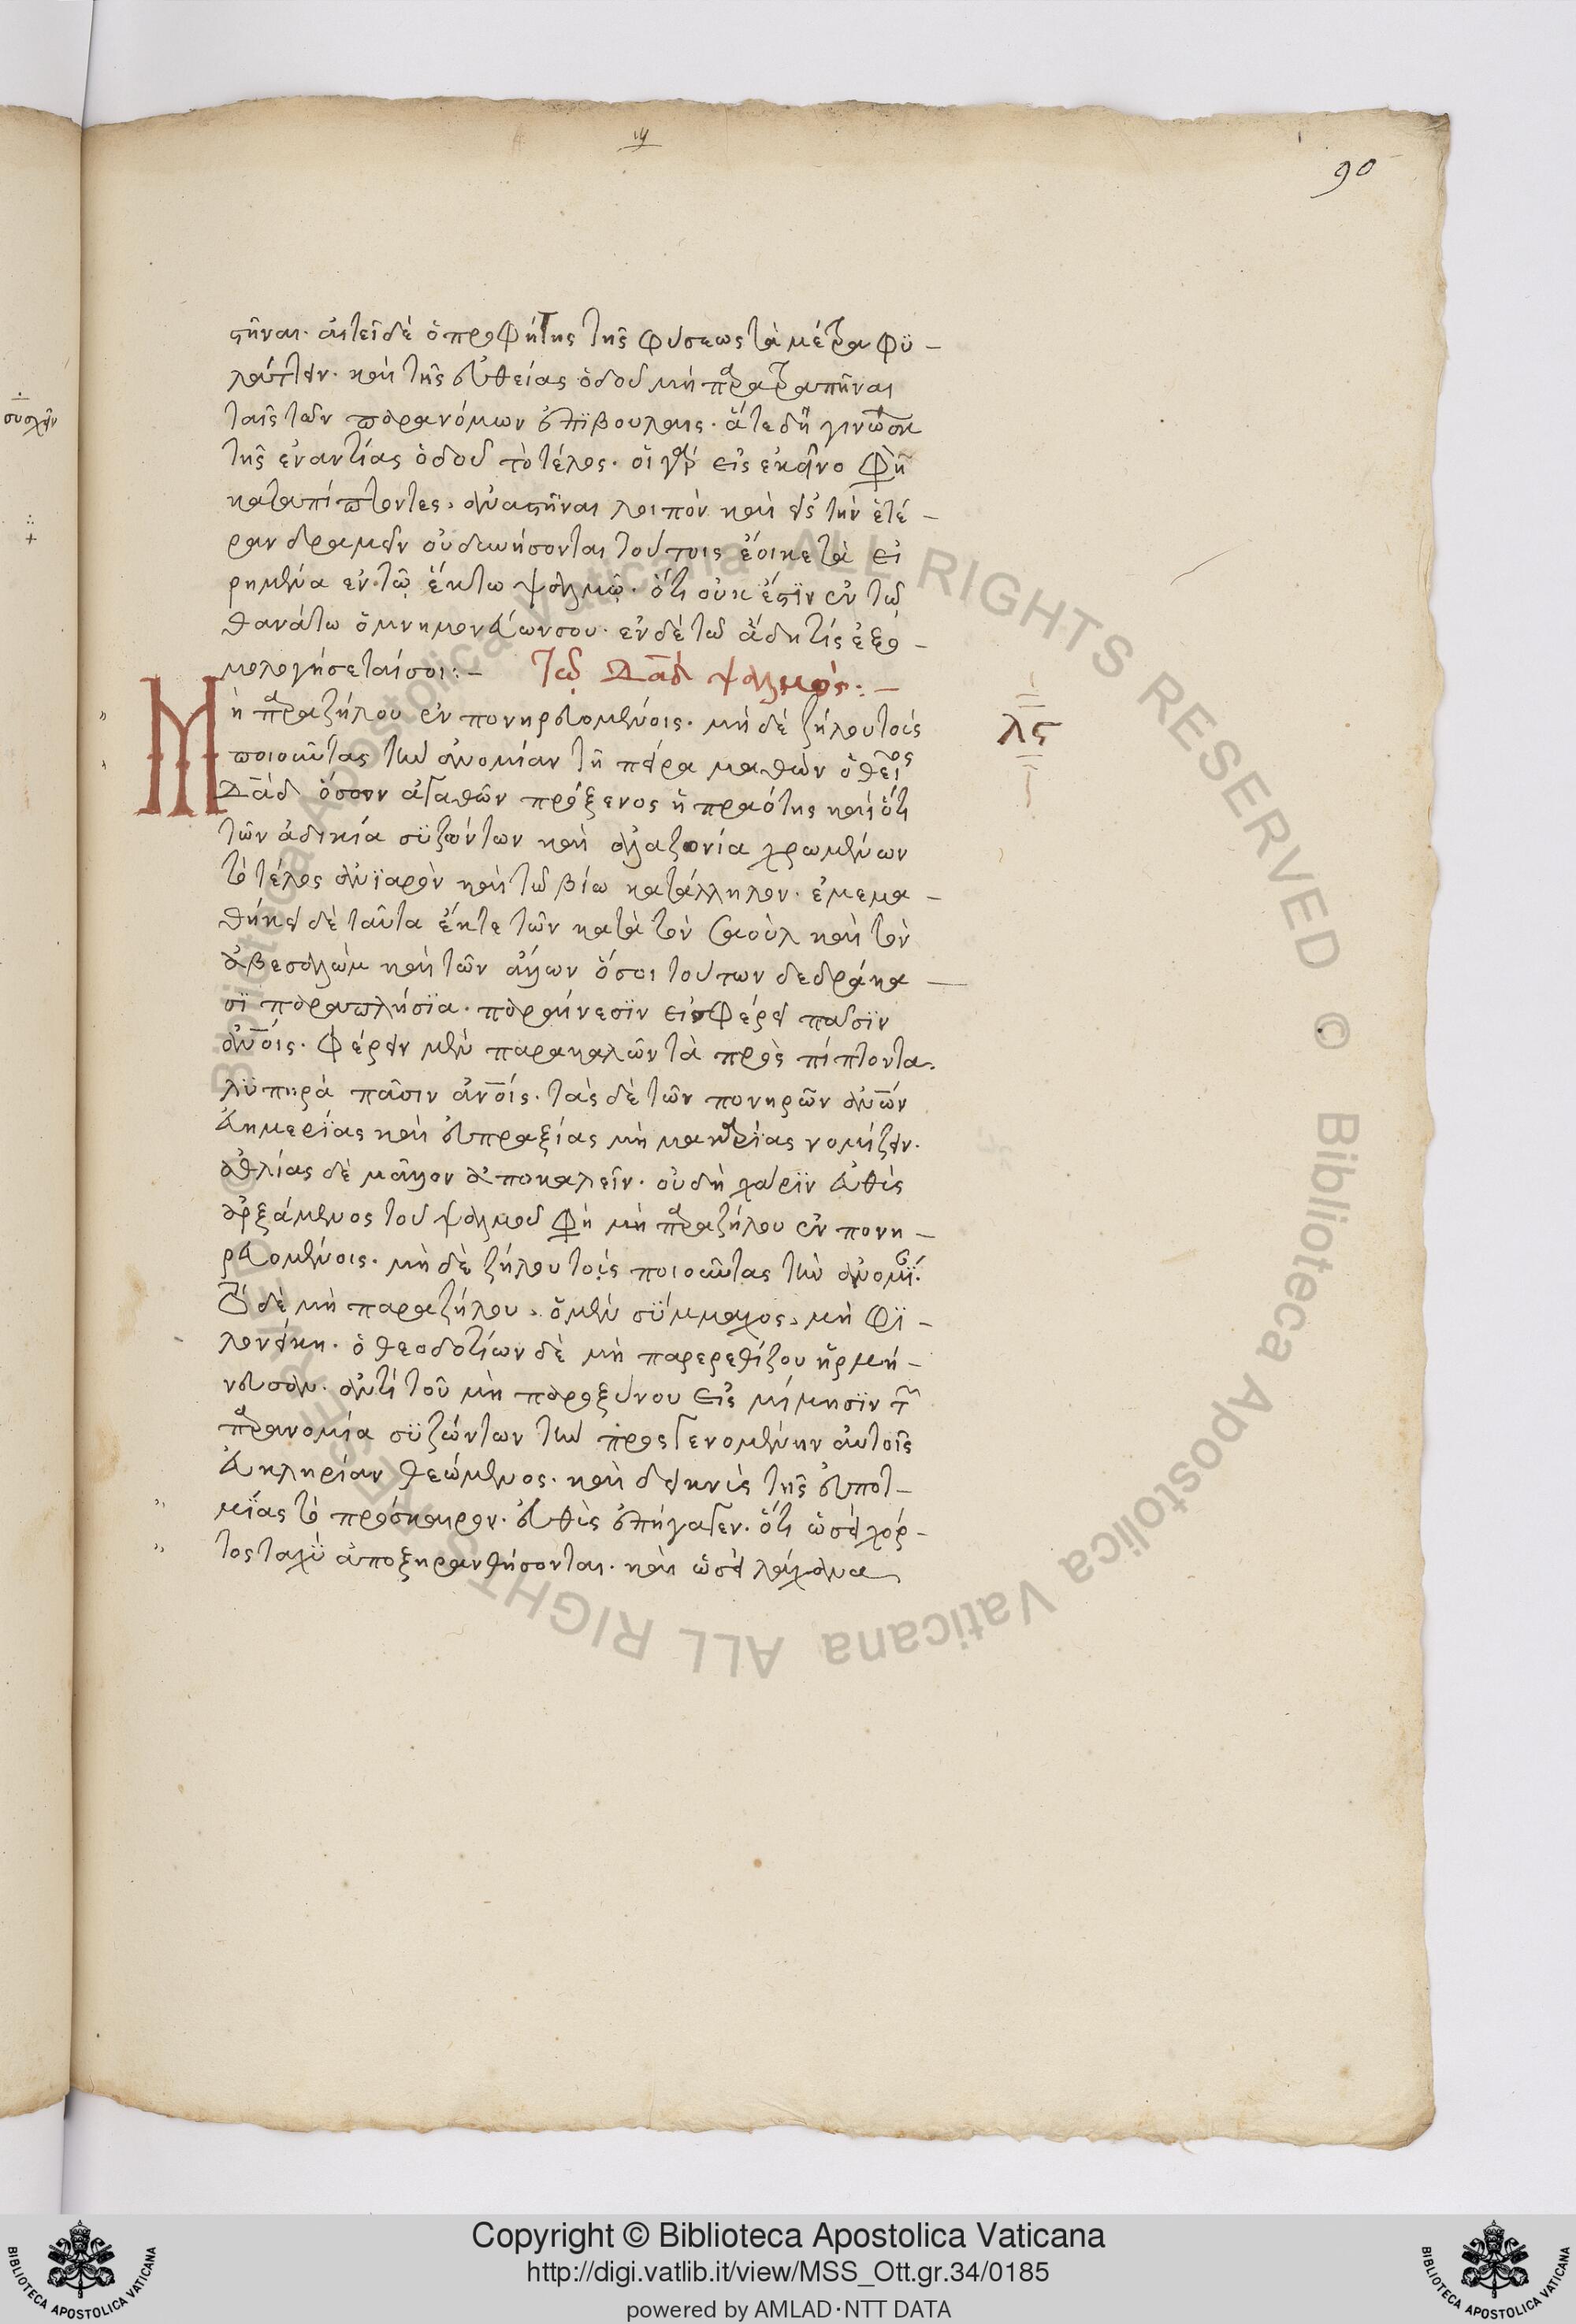 ιγ
90
στῆναι. αἰτεῖ δὲ ὁ προφήτης τῆς φύσεως τὰ μέτρα φυ-
λάττειν. καὶ τῆς εὐθείας ὁδοῦ μὴ παρατραπῆναι
ταῖς τῶν παρανόμων ἐπιβουλαῖς. ἅτε δὴ γινώσκ
τῆς ἐναντίας ὁδοῦ τὸ τέλος. οἱ γὰρ εἰς ἐκεῖνο φη
καταπίπτοντες, ἀναστῆναι λοιπὸν καὶ εἰς τὴν ἑτέ-
ραν δραμεῖν οὐ δυνήσονται τούτοις ἔοικε τὰ εἰ
ρημένα ἐν τῷ ἕκτω ψαλμῷ. ὅτι οὐκ ἔστιν ἐν τῶ
θανάτω ὁ μνημονεύων σου. ἐν δὲ τῶ ἅδη τίς ἐξο-
μολογήσεταί σοι:- Τῷ Δαδ ψαλμός:-
Μὴ παραζήλου ἐν πονηρευομένοις. μὴ δὲ ζήλου τοὺς
λς
ποιοῦντας τὴν ἀνομίαν τῆ πείρα μαθὼν ὁ θεῖος
Δαδ ὅσων ἀγαθῶν πρόξενος ἡ πραότης καὶ ὅτι
τῶν ἀδικία συζώντων καὶ ἀλαζονία χρωμένων
τὸ τέλος ἀνιαρὸν καὶ τῶ βίω κατάλληλον. ἐμεμα-
θήκει δὲ ταῦτα ἔκ τε τῶν κατὰ τὸν Σαοὺλ καὶ τὸν
ἀβεσαλὼμ καὶ τῶν ἄλλων ὅσοι τούτων δεδράκα-
σι παραπλήσια. παραίνεσιν εἰσφέρει πᾶσιν
ἀνοις. φέρειν μὲν παρακαλῶν τὰ προσπίπτοντα
λυπηρὰ πᾶσιν ἀνοις. τὰς δὲ τῶν πονηρῶν ἀνων
εὐημερίας καὶ εὐπραξίας μὴ μακαρίας νομίζειν.
ἀθλίας δὲ μᾶλλον ἀποκαλεῖν. οὗ δὴ χάριν εὐθὺς
ἀρξάμενος τοῦ ψαλμοῦ φη μὴ παραζήλου ἐν πονη-
ρευομένοις. μὴ δὲ ζήλου τοὺς ποιοῦντας τὴν ἀνομί.
Τὸ δὲ μὴ παραζήλου, ὁ μὲν σύμμαχος, μὴ φι-
λονείκει. ὁ θεοδοτίων δὲ μὴ παρερεθίζου ἡρμή-
νευσαν. ἀντὶ τοῦ μὴ παροξύνου εἰς μίμησιν τ
παρανομία συζώντων τὴν προσγενομένην αὐτοῖς
εὐκληρίαν θεώμενος. καὶ δεικνὺς τῆς εὐποτ-
μίας τὸ πρόσκαιρον. εὐθὺς ἐπήγαγεν. ὅτι ὡσεὶ χόρ-
τος ταχὺ ἀποξηρανθήσονται. καὶ ὡσεὶ λάχανα
Copyright © Biblioteca Apostolica Vaticana
http://digi.vatlib.it/view/MSS_Ott.gr.34/0185
powered by AMLAD·NTT DATA